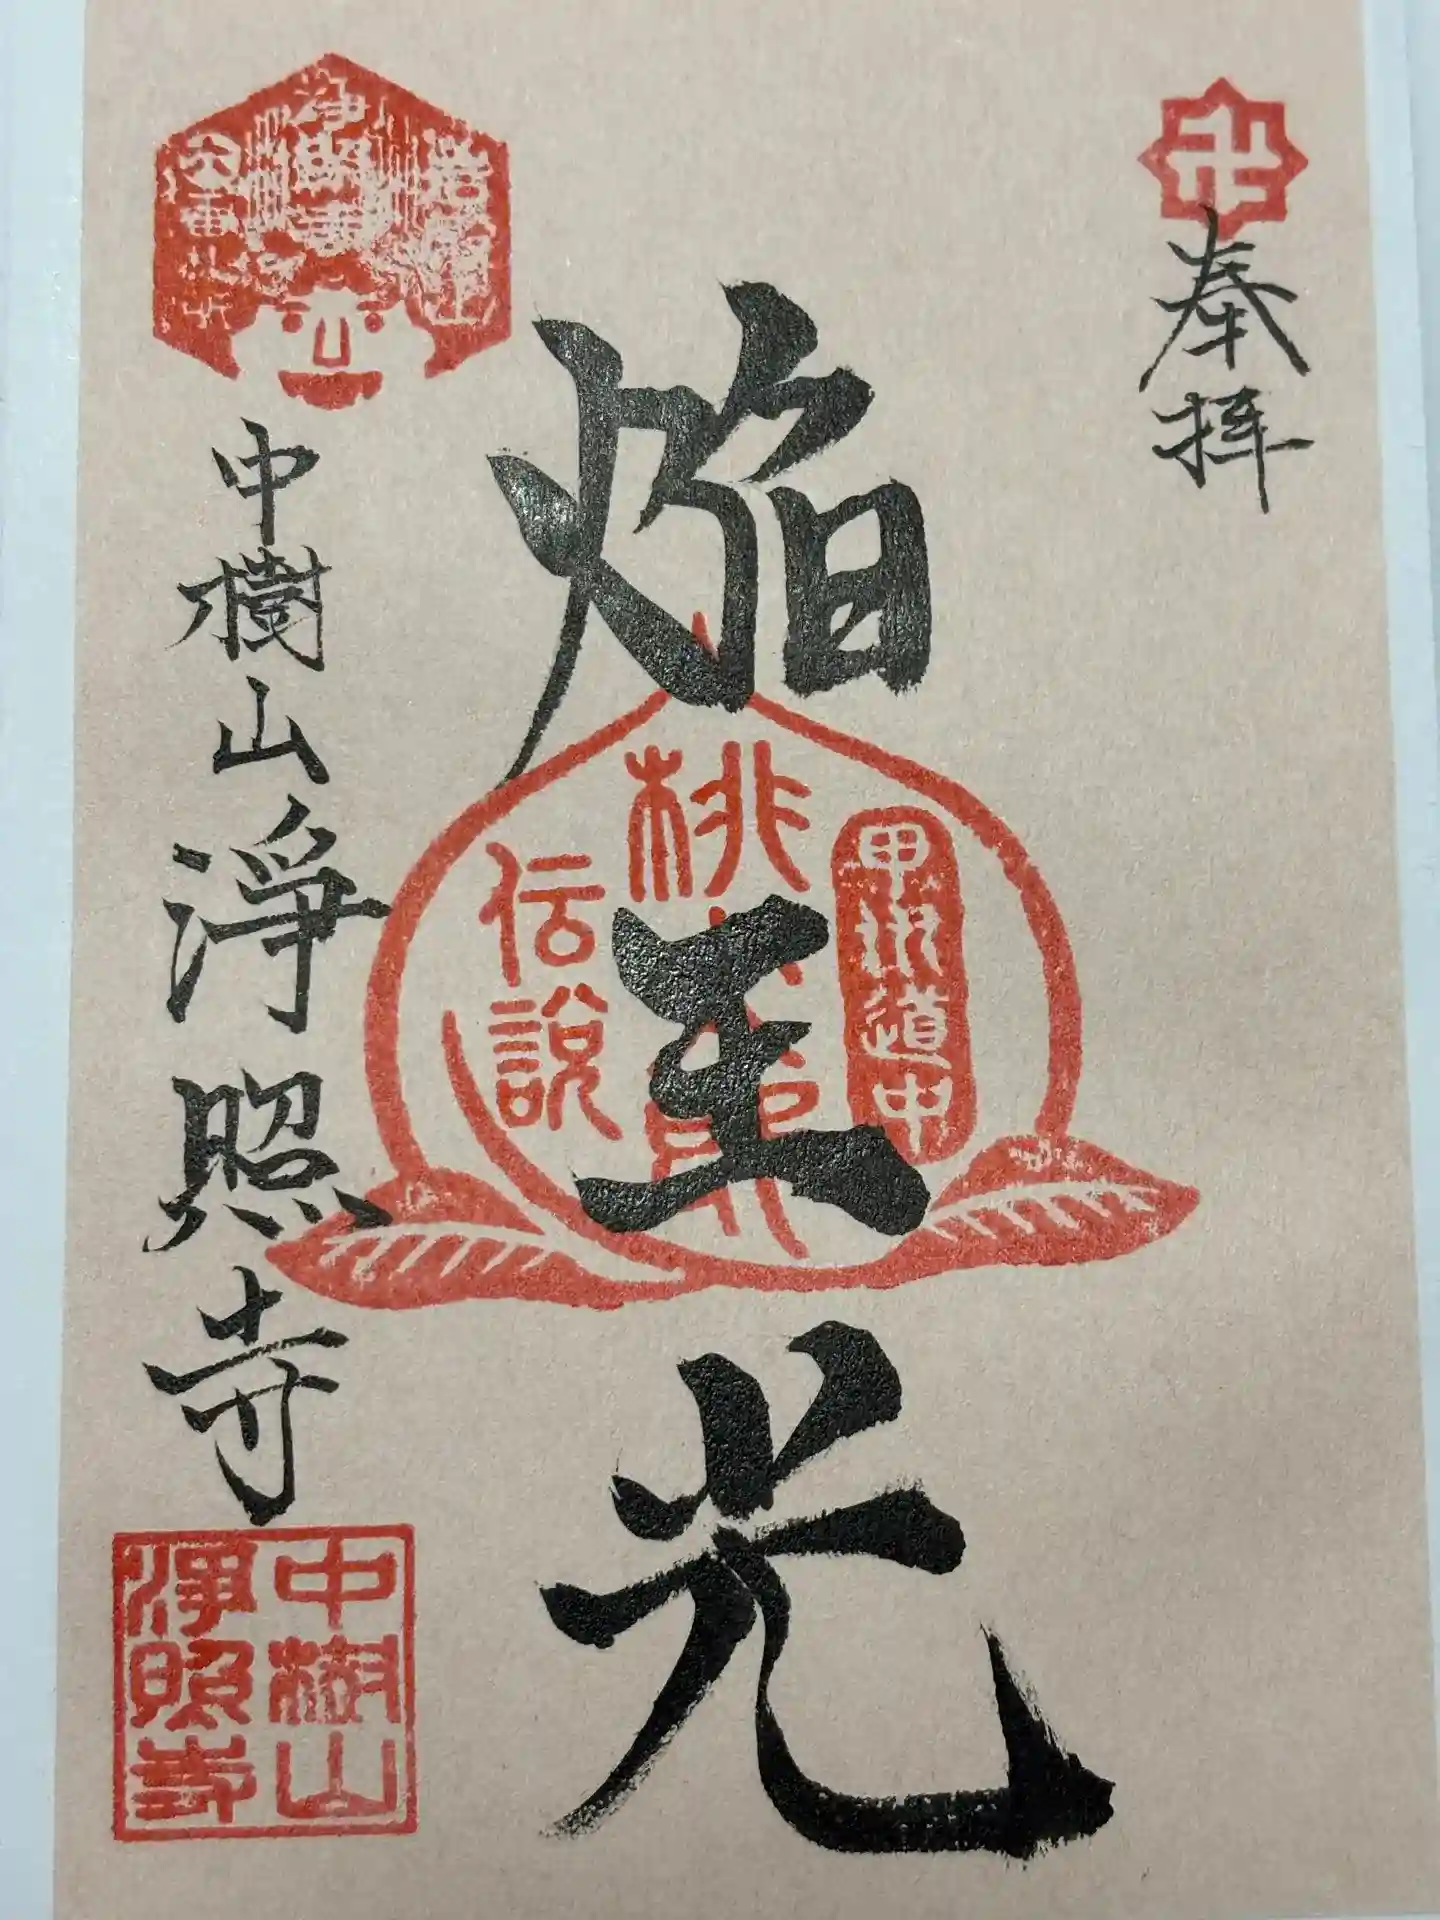 奉拝
焔王光
甲州道中
桃太郎
伝説
中樹山浄照寺
中樹山
浄照寺